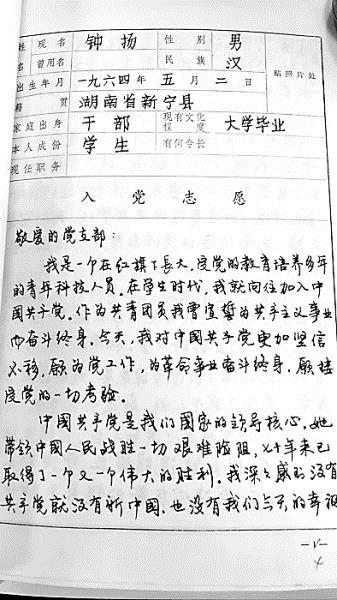 姓 现名 钟扬 性别 男
名 曾用名 民族 汉
出生年月 一九六四年 五月 二日 贴照片处
籍贯 湖南省新宁县
家庭出身 干部 现有文化程度 大学毕业
本人成份 学生 有何专长
现任职务
入党志愿
敬爱的党支部：
我是一个在红旗下长大，受党的教育培养多年
的青年科技人员。在学生时代，我就向往加入中
国共产党。作为共青团员我曾宣誓为共产主义事业
而奋斗终身。今天，我对中国共产党更加坚信
不移，愿为党工作，为革命事业奋斗终身，愿接
受党的一切考验。
中国共产党是我们国家的领导核心。她
带领中国人民战胜一切艰难险阻，七十年来已
取得了一个又一个伟大的胜利。我深深感到没有
共产党就没有新中国，也没有我们今天的幸福